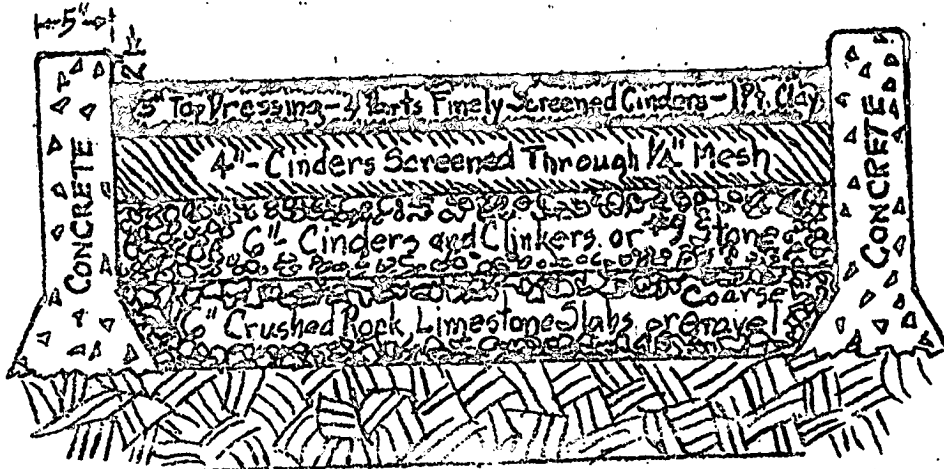 5"
2"
Top Dressing - Parts Finely Screened Cinders - 1 Pt. Clay
4" - Cinders Screened Through 1/4" Mesh
6" - Cinders and Clinkers or Stone
Coarse
6" Crushed Rock, Limestone Slabs or Gravel
CONCRETE
CONCRETE